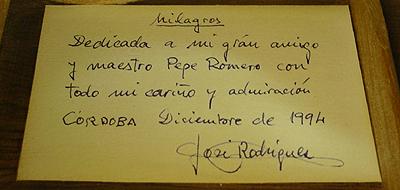 Milagros
Dedicada a mi grán amigo
y maestro Pepe Romero con
todo mi cariño y admiración
CÓRDOBA Diciembre de 1994
José Rodríguez